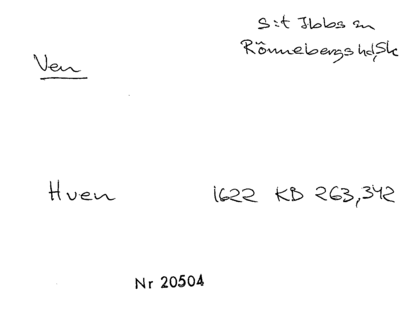 S:t Ibbs sn
Rönnebergs hd, Sk
Ven
Hven 1622 KB 263,342
Nr 20504